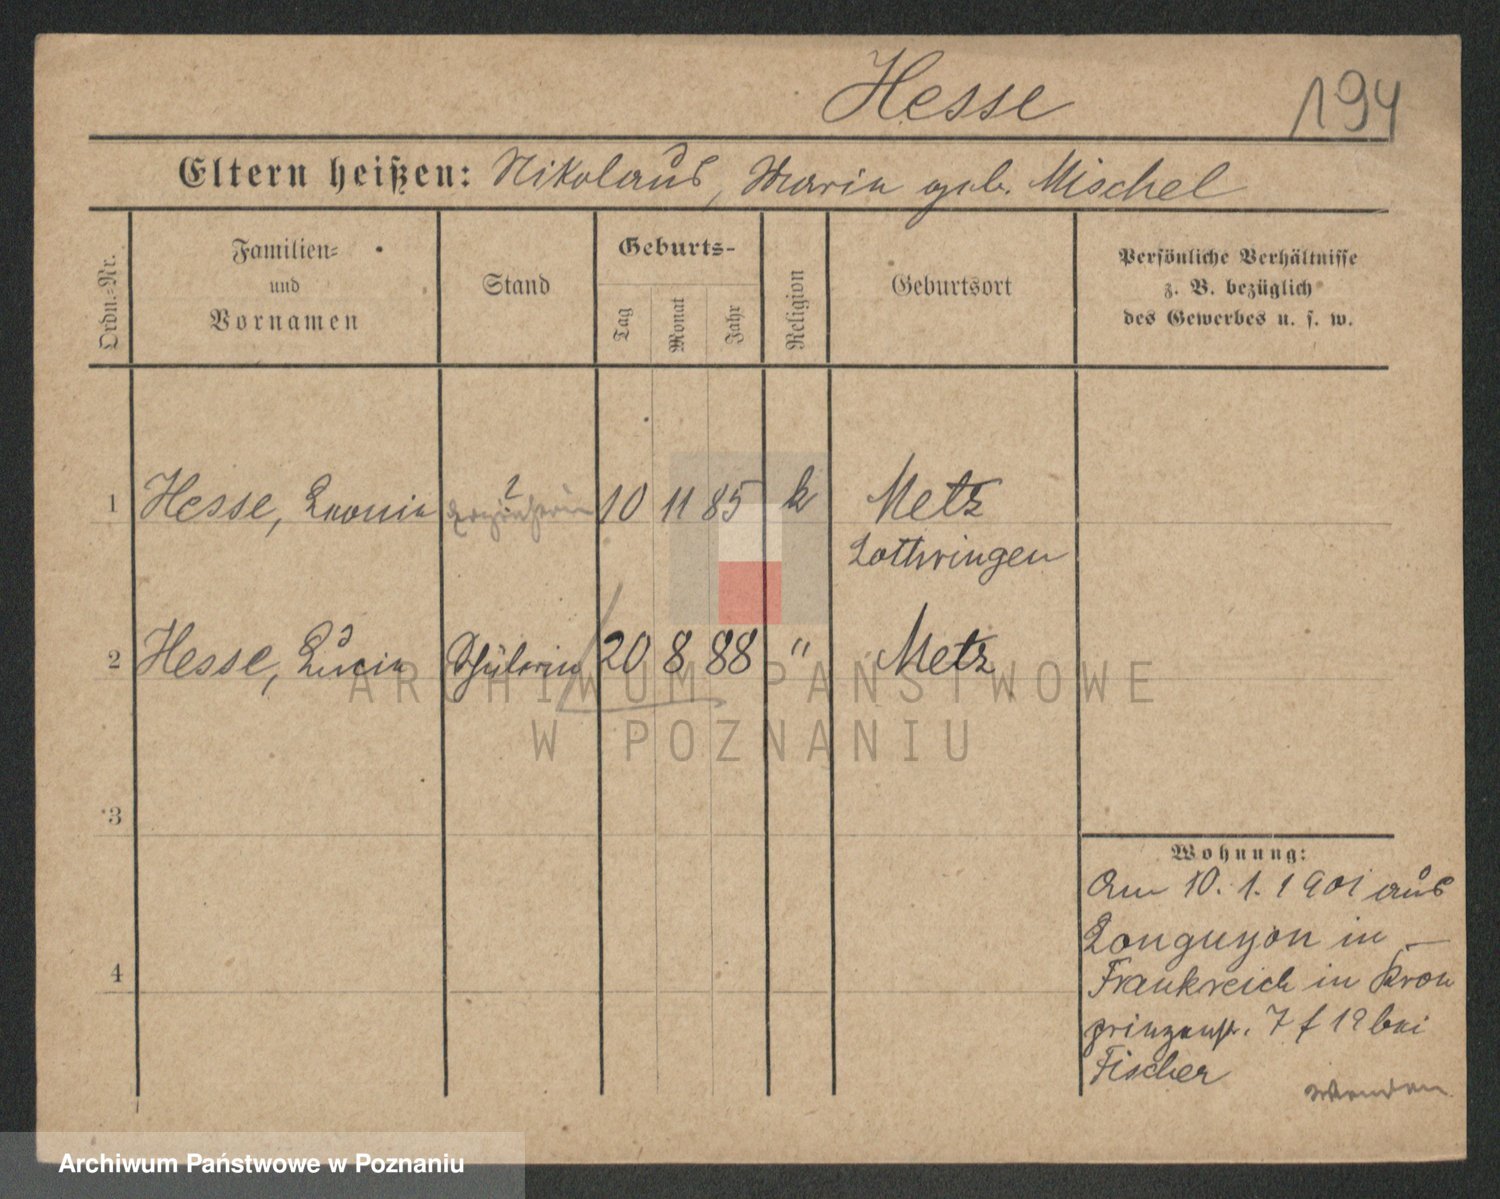 Hesse
194
Eltern heißen: Nikolaus, Maria geb. Mischel
Ordn.-Nr.
Familien-
und
Vornamen
Stand
Geburts-
Tag
Monat
Jahr
Religion
Geburtsort
Persönliche Verhältnisse
z. B. bezüglich
des Gewerbes u. s. w.
?
1 Hesse, Leonie Erzieherin 10 11 85 k Metz
Lothringen
2 Hesse, Lucie Schülerin 20 8 88 " Metz
ARCHIWUM PAŃSTWOWE
W POZNANIU
3
4
Wohnung:
Am 10. 1. 1901 aus
Longuyon in
Frankreich in Kron
prinzenstr. 7 f 19 bei
Fischer
Wenden
Archiwum Państwowe w Poznaniu